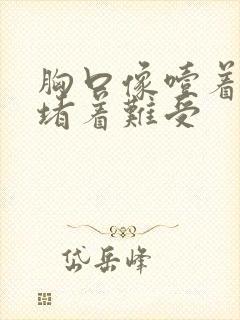 胸口像噎着
堵着難受
岱岳峰